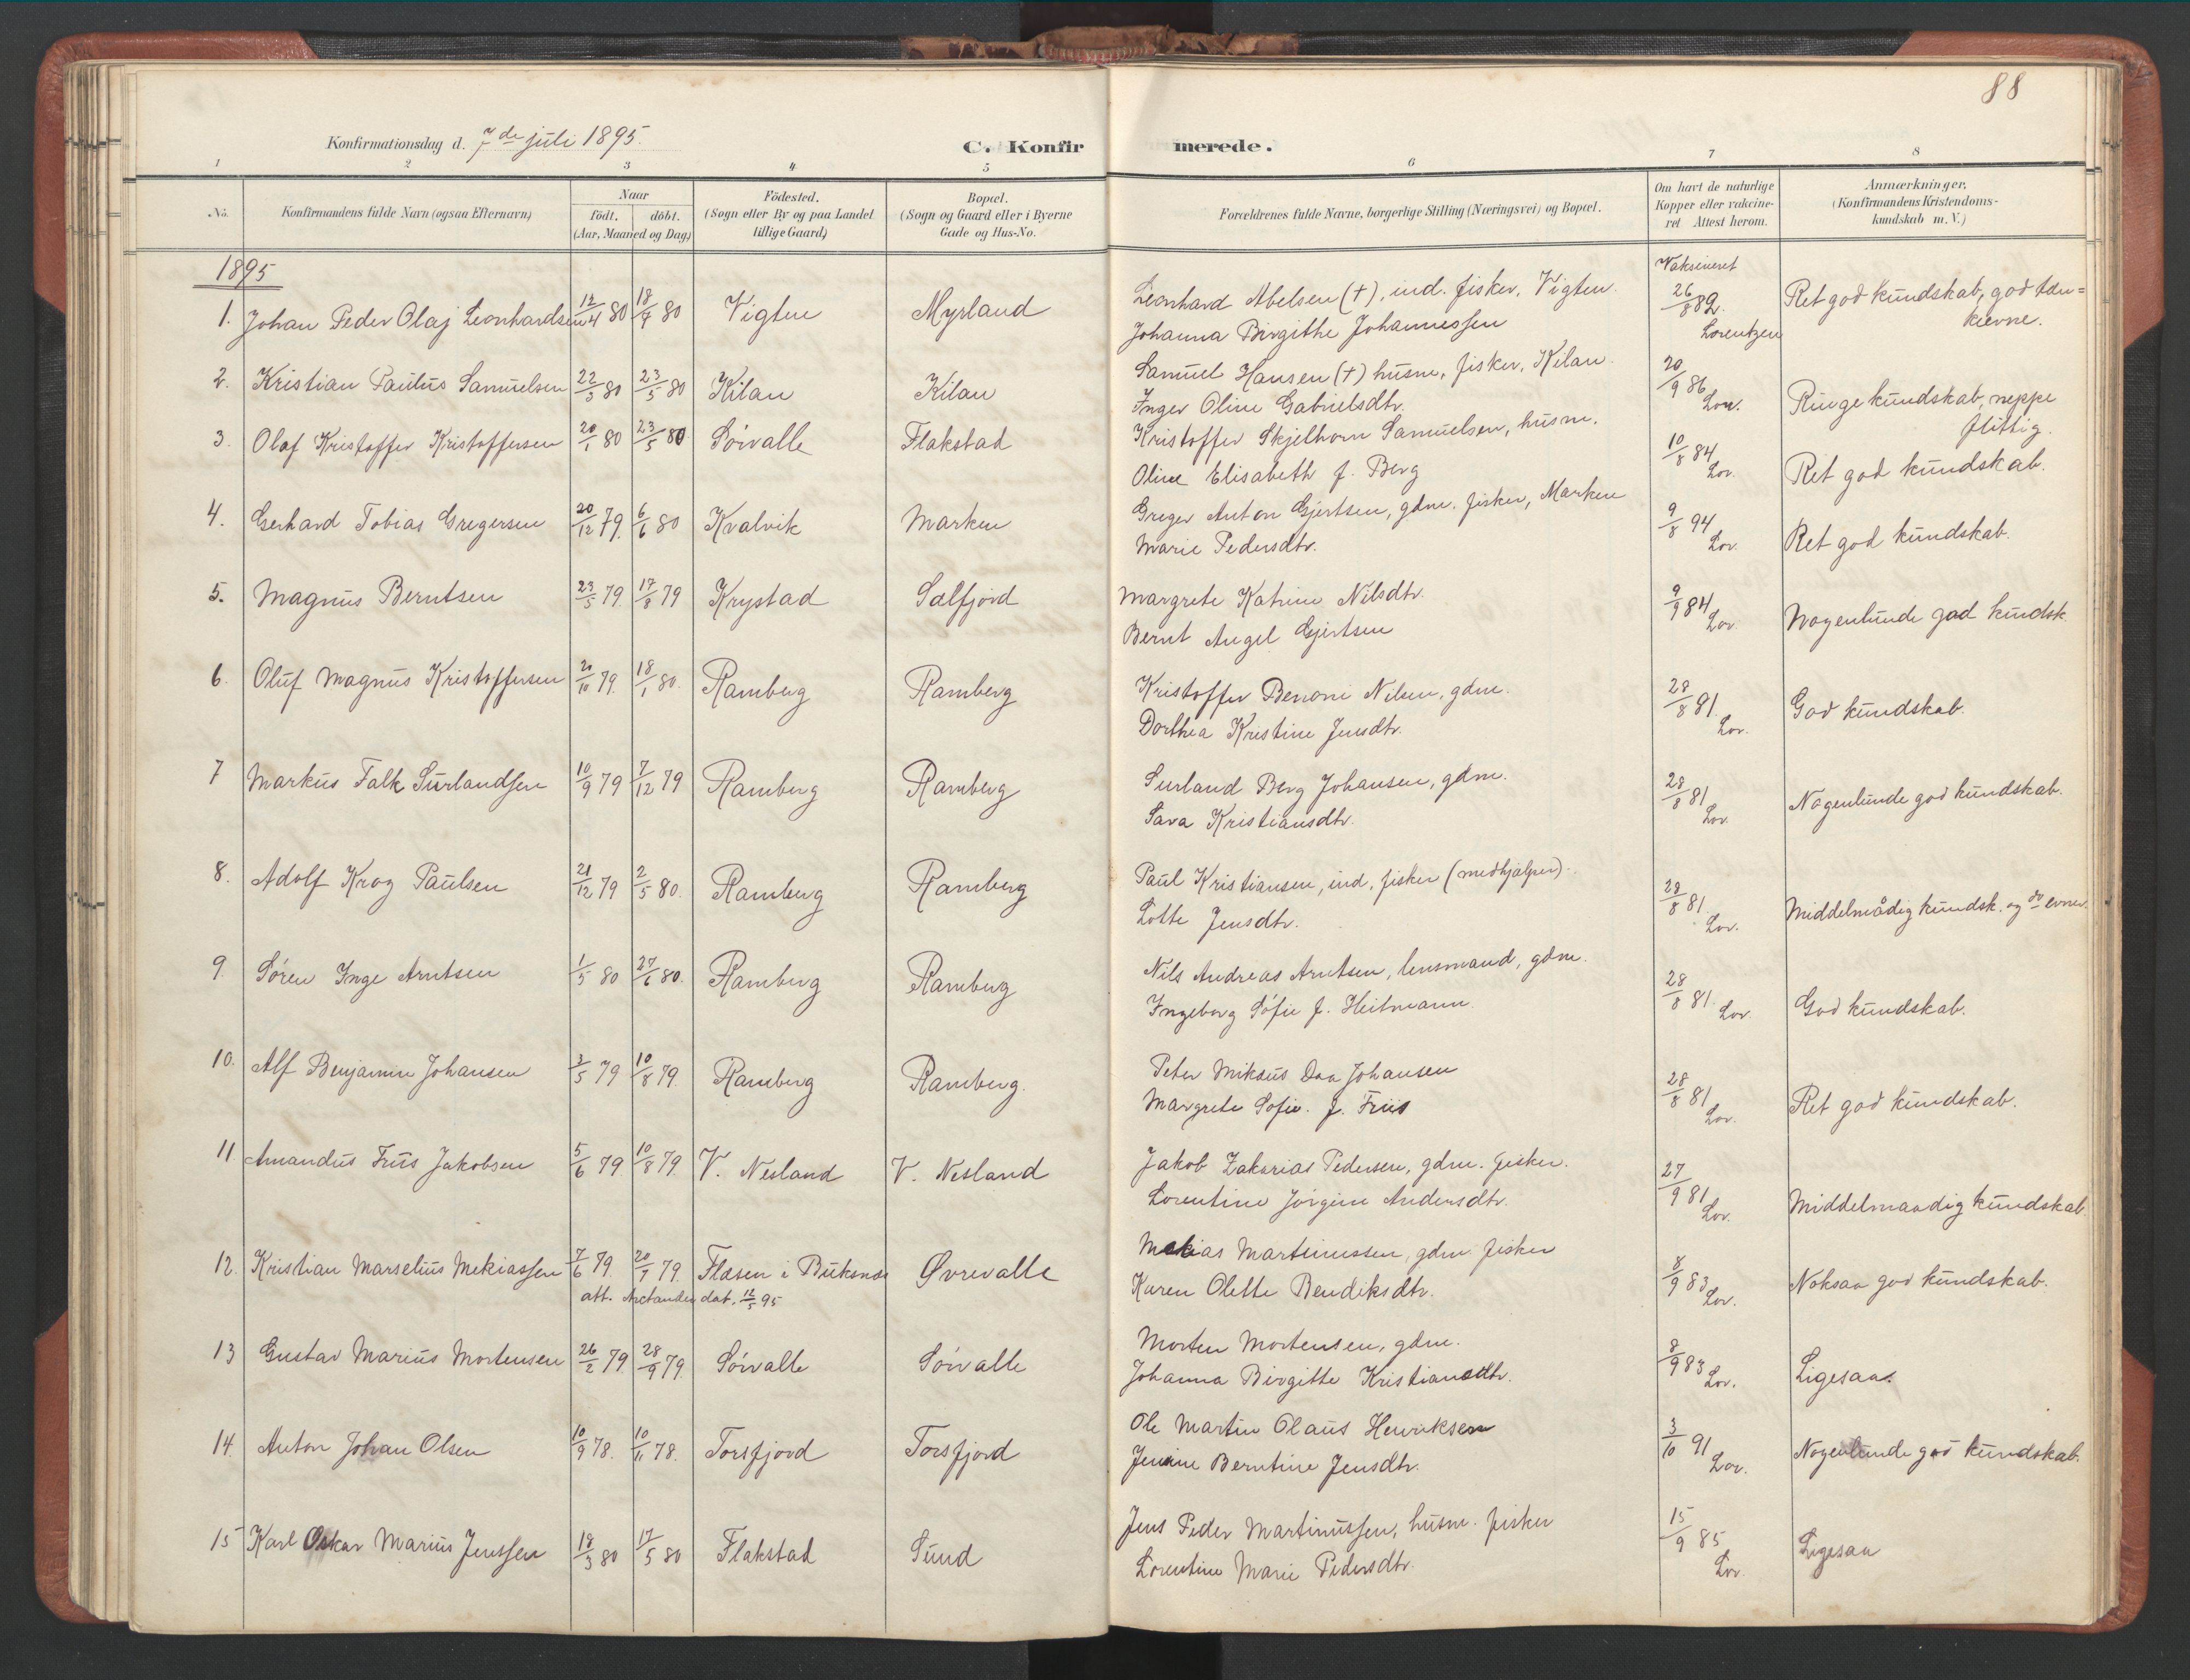 88
Konfirmationsdag d. 7de juli 1895.
C. Konfirmerede.
1 2 3 4 5 6 7 8
No. Konfirmandens fulde Navn (ogsaa Efternavn) Naar födt. döbt. (Aar, Maaned og Dag) Födested. (Sogn eller By og paa Landet tillige Gaard) Bopæl. (Sogn og Gaard eller i Byerne Gade og Hus-No. Forældrenes fulde Navne, borgerlige Stilling (Næringsvei) og Bopæl. Om havt de naturlige Kopper eller vakcineret Attest herom. Anmærkninger. (Konfirmandens Kristendomskundskab m. V.)
1895
1. Johan Peder Olaj Leonhardsen 12/4 80 18/7 80 Vigten Myrland Leonhard Abelsen (†), ind. fisker, Vigten. Vaksineret 26/8 82. Ret god kundskab, god tæn=
Johanna Birgithe Johannessen Lorentzen kievne.
2. Kristian Paulus Samuelsen 22/3 80 23/5 80 Kilan Kilan Samuel Hansen (†) husm, fisker, Kilan. 20/9 86 Lor. Ringe kundskab, neppe
Inger Oline Gabrielsdtr. flittig.
3. Olaf Kristoffer Kristoffersen 20/1 80 23/5 80 Sörvalle Flakstad Kristoffer Skjelhorn Samuelsen, husm. 10/8 84 Lor. Ret god kundskab.
Oline Elisabeth f. Berg
4. Gerhard Tobias Gregersen 20/12 79. 6/6 80 Kvalvik Marken Greger Anton Gjertsen, gdm. fisker, Marken 9/8 94 Lor. Ret god kundskab.
Marie Pedersdtr.
5. Magnus Berntsen 23/5 79. 17/8 79 Krystad Selfjord Margrete Katrine Nilsdtr. 9/9 84 Lor. Nogenlunde god kundsk.
Bernt Angel Gjertsen
6. Oluf Magnus Kristoffersen 20/10 79. 18/1 80. Ramberg Ramberg Kristoffer Benoni Nilsen, gdm. 28/8 81. Lor. God kundskab.
Dorthea Kristine Jensdtr.
7 Markus Falk Surlandsen 10/9 79 7/12 79 Ramberg Ramberg Surland Berg Johansen, gdm. 28/8 81 Lor. Nogenlunde god kundskab.
Sara Kristiansdtr.
8. Adolf Krog Paulsen 21/12 79 2/5 80. Ramberg Ramberg Paul Kristiansen, ind. fisker (medhjælper). 28/8 81. Lor. Middelmådig kundsk. og do evner.
Lotte Jensdtr.
9. Sören Inge Arntsen 1/5 80 27/6 80. Ramberg Ramberg Nils Andreas Arntsen, lensmand, gdm. 28/8 81. Lor. God kundskab.
Ingeborg Sofie f. Heitmann.
10. Alf Benjamin Johansen 3/5 79 10/8 79. Ramberg Ramberg. Peter Mikaus Daa Johansen 28/8 81 Lor. Ret god kundskab.
Margrete Sofie. f. Friis
11. Amandus Friis Jakobsen 5/6 79. 10/8 79. V. Nesland V. Nesland Jakob Zakarias Pedersen, gdm. fisker. 27/9 81 Lor. Middelmaadig kundskab.
Lorentine Jörgine Andersdtr.
12. Kristian Marselius Mekiassen 7/6 79. 20/7 79. Flæsen i Buksnæs Øvrevalle Mekias Martinussen, gdm. fisker 8/9 83 Lor. Noksaa god kundskab.
att. Arctander dat. 12/5 95 Karen Olette Bendiksdtr.
13 Gustav Marius Mortensen 26/2 79. 28/9 79. Sörvalle Sörvalle Morten Mortensen, gdm. 8/9 83 Lor. Ligesaa.
Johanna Birgitte Kristiansdtr.
14. Anton Johan Olsen 10/9 78. 10/11 78. Torsfjord Torsfjord Ole Martin Olaus Henriksen 3/10 91 Lor. Nogenlunde god kundskab.
Jenine Berntine Jensdtr.
15 Karl Oskar Marius Jenssen 18/3 80 17/5 80 Flakstad Sund Jens Peder Martinussen, husm. fisker 15/9 85 Lor. Ligesaa
Lorentine Marie Pedersdtr.